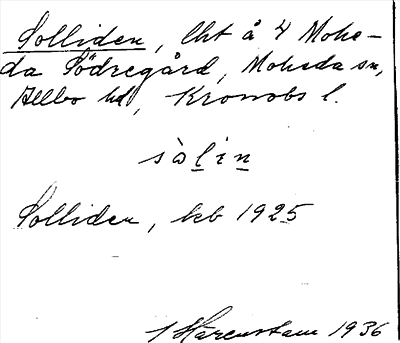 Solliden, lht å 4 Mohe-
da Södregård, Moheda sn,
Allbo hd, Kronobs l.
sòlin
Solliden, kb 1925
Harenstam 1936